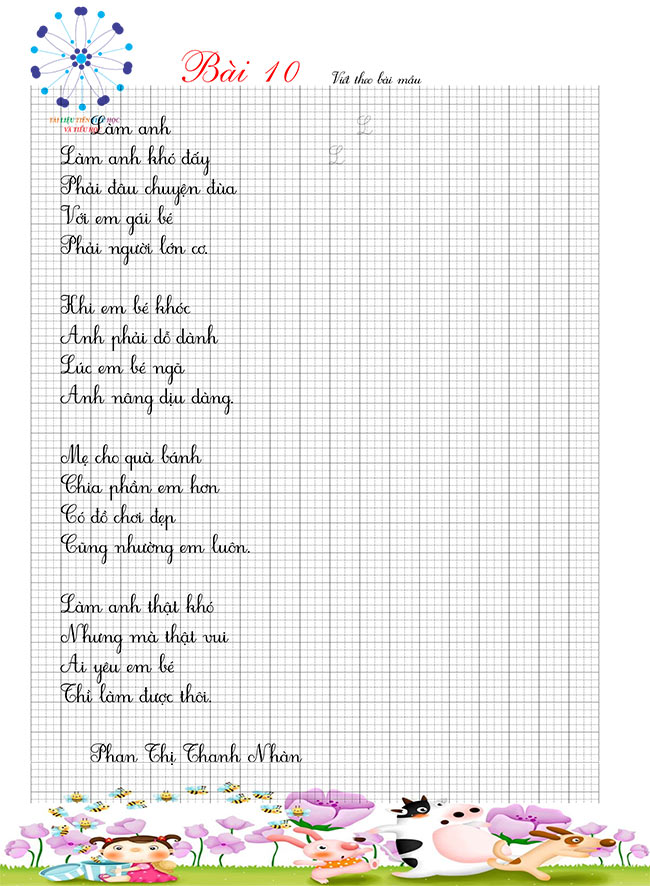 Bài 10
Viết theo bài mẫu
TÀI LIỆU TIỀN TIỂU HỌC
VÀ TIỂU HỌC
Làm anh
L
Làm anh khó đấy
L
Phải đâu chuyện đùa
Với em gái bé
Phải người lớn cơ.
Khi em bé khóc
Anh phải dỗ dành
Lúc em bé ngã
Anh nâng dịu dàng.
Mẹ cho quà bánh
Chia phần em hơn
Có đồ chơi đẹp
Cũng nhường em luôn.
Làm anh thật khó
Nhưng mà thật vui
Ai yêu em bé
Thì làm được thôi.
Phan Thị Thanh Nhàn